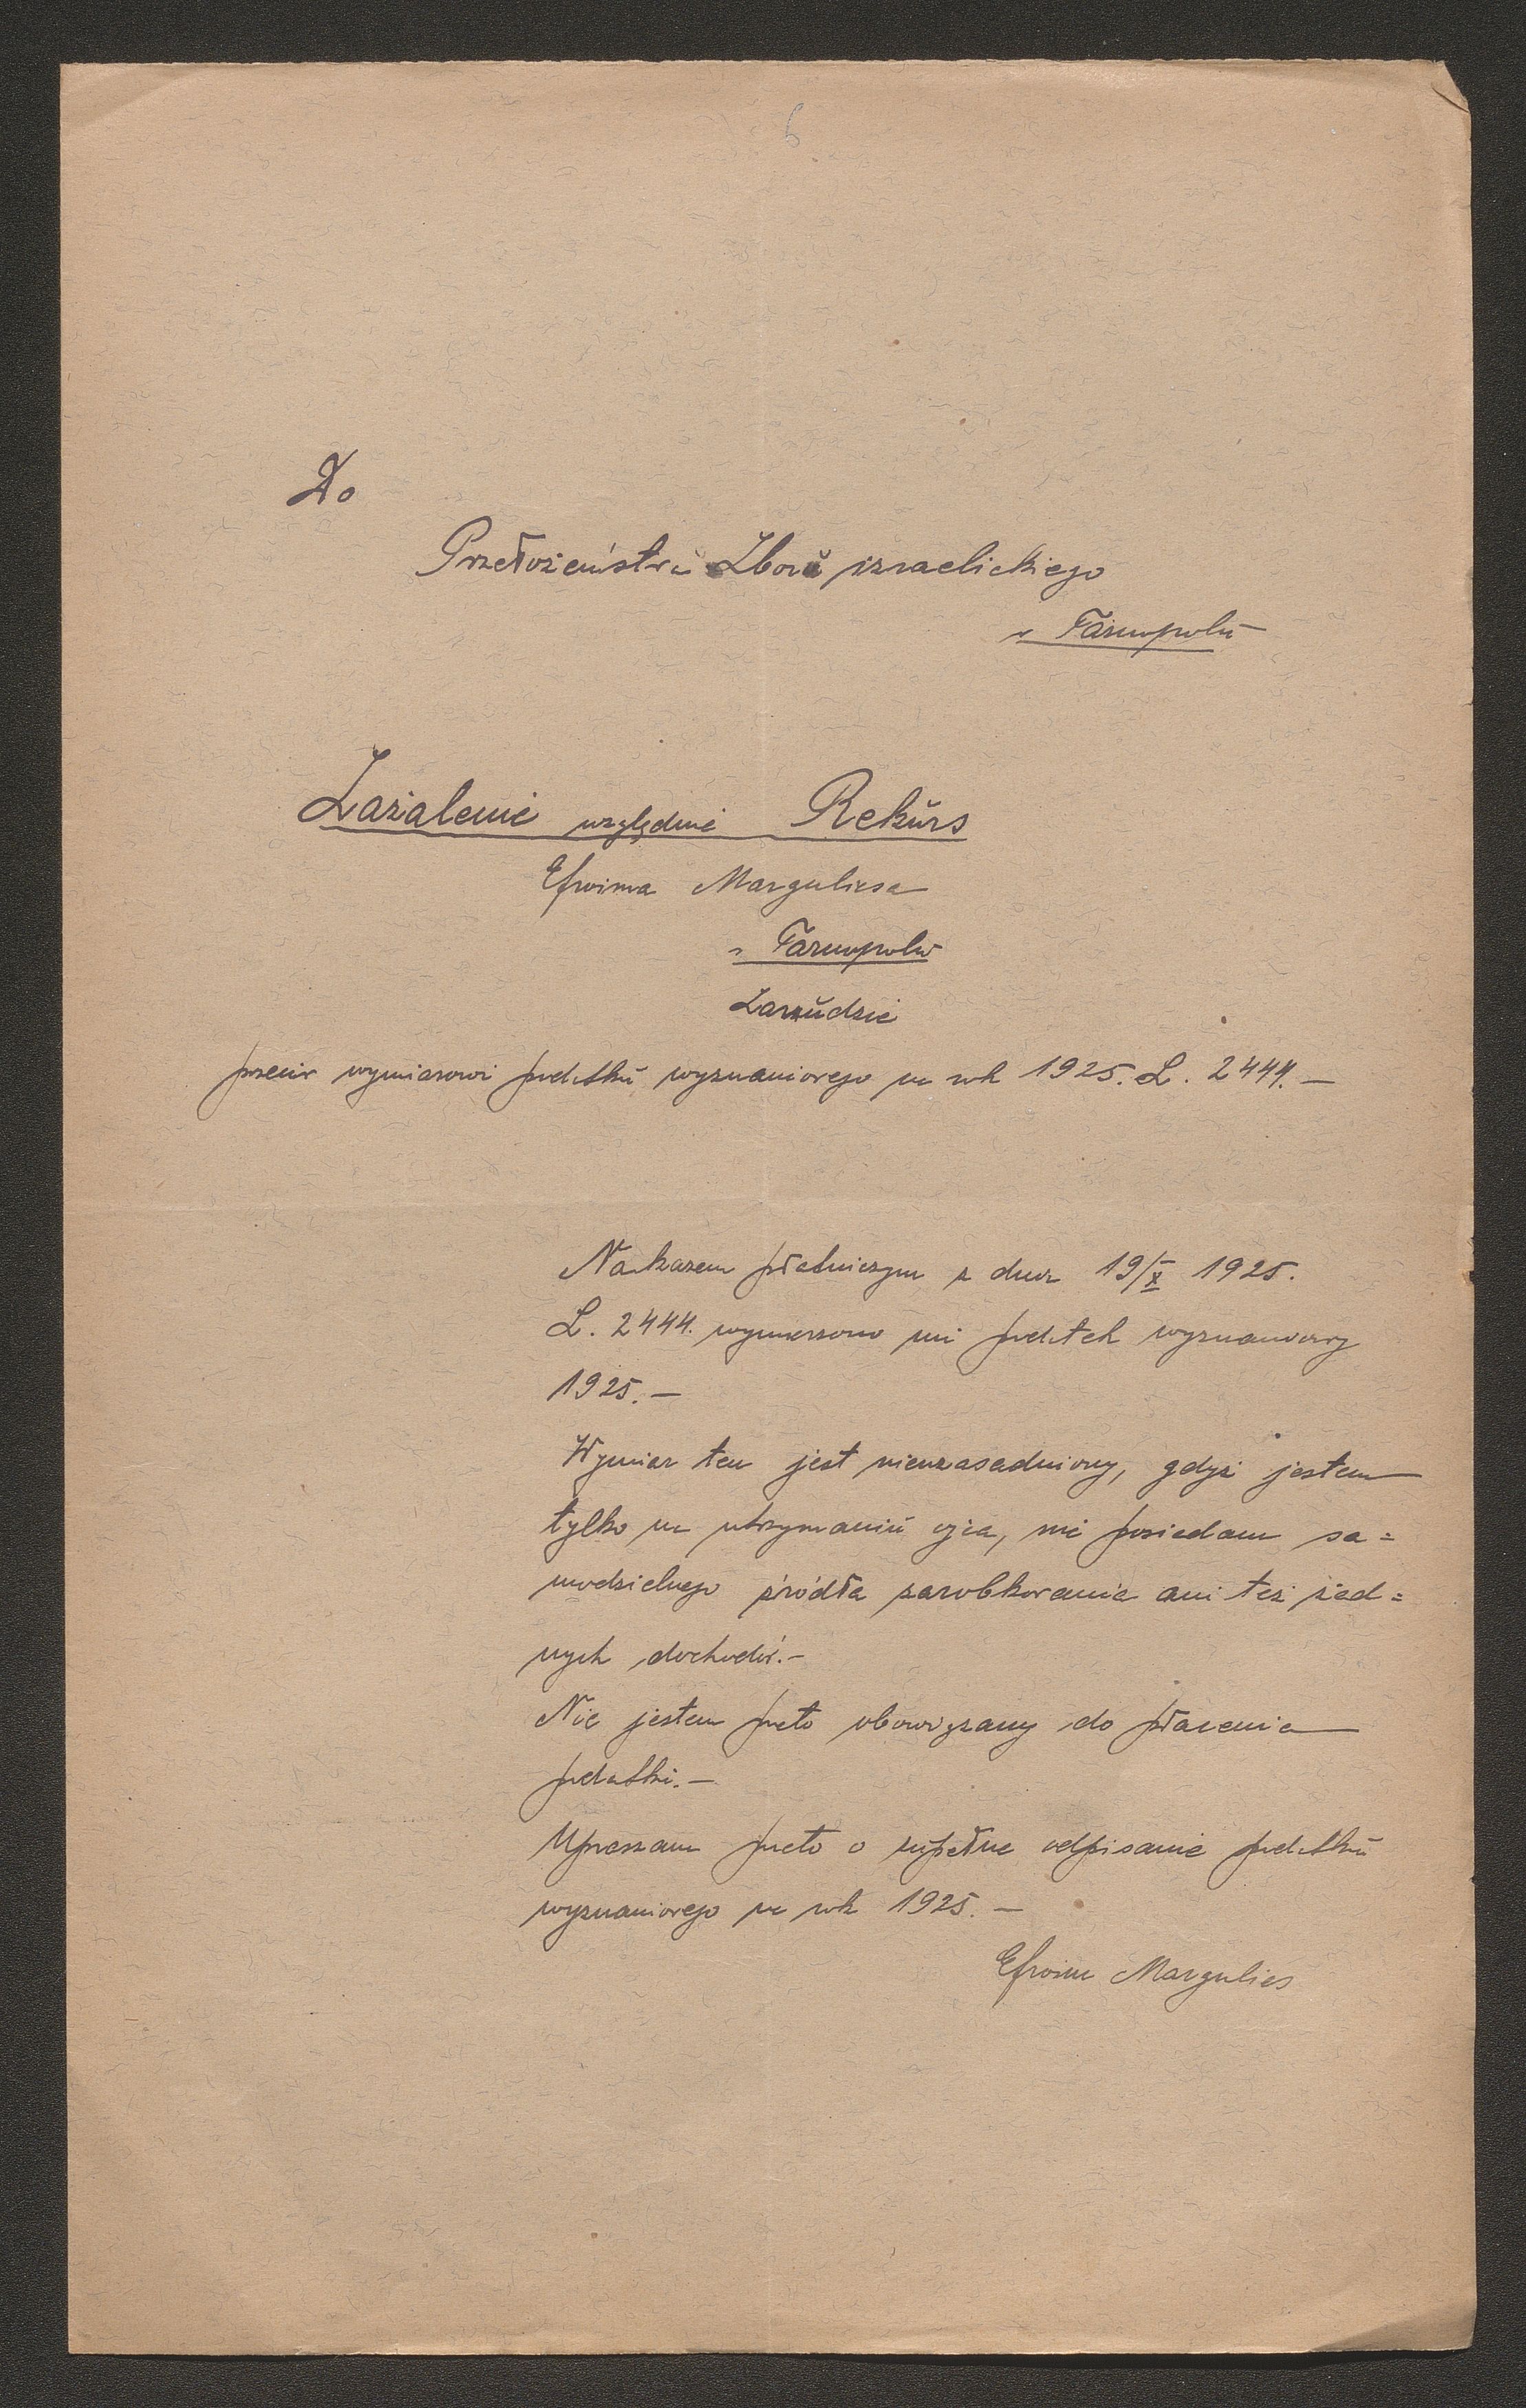 6
Do
Przełożeństwa Zboru izraelickiego
w Tarnopolu
Zażalenie względnie Rekurs
Efroima Marguliesa
w Tarnopolu
Zarudzie
przeciw wymiarowi podatku wyznaniowego na rok 1925. L. 2444. —
Nakazem płatniczym z dnia 19/X 1925.
L. 2444. wymierzono mi podatek wyznaniowy
1925. —
Wymiar ten jest nieuzasadniony, gdyż jestem
tylko na utrzymaniu ojca, nie posiadam sa=
modzielnego źródła zarobkowania ani też żad=
nych dochodów. —
Nie jestem przeto obowiązany do płacenia
podatku. —
Upraszam przeto o zupełne odpisanie podatku
wyznaniowego na rok 1925. —
Efroim Margulies